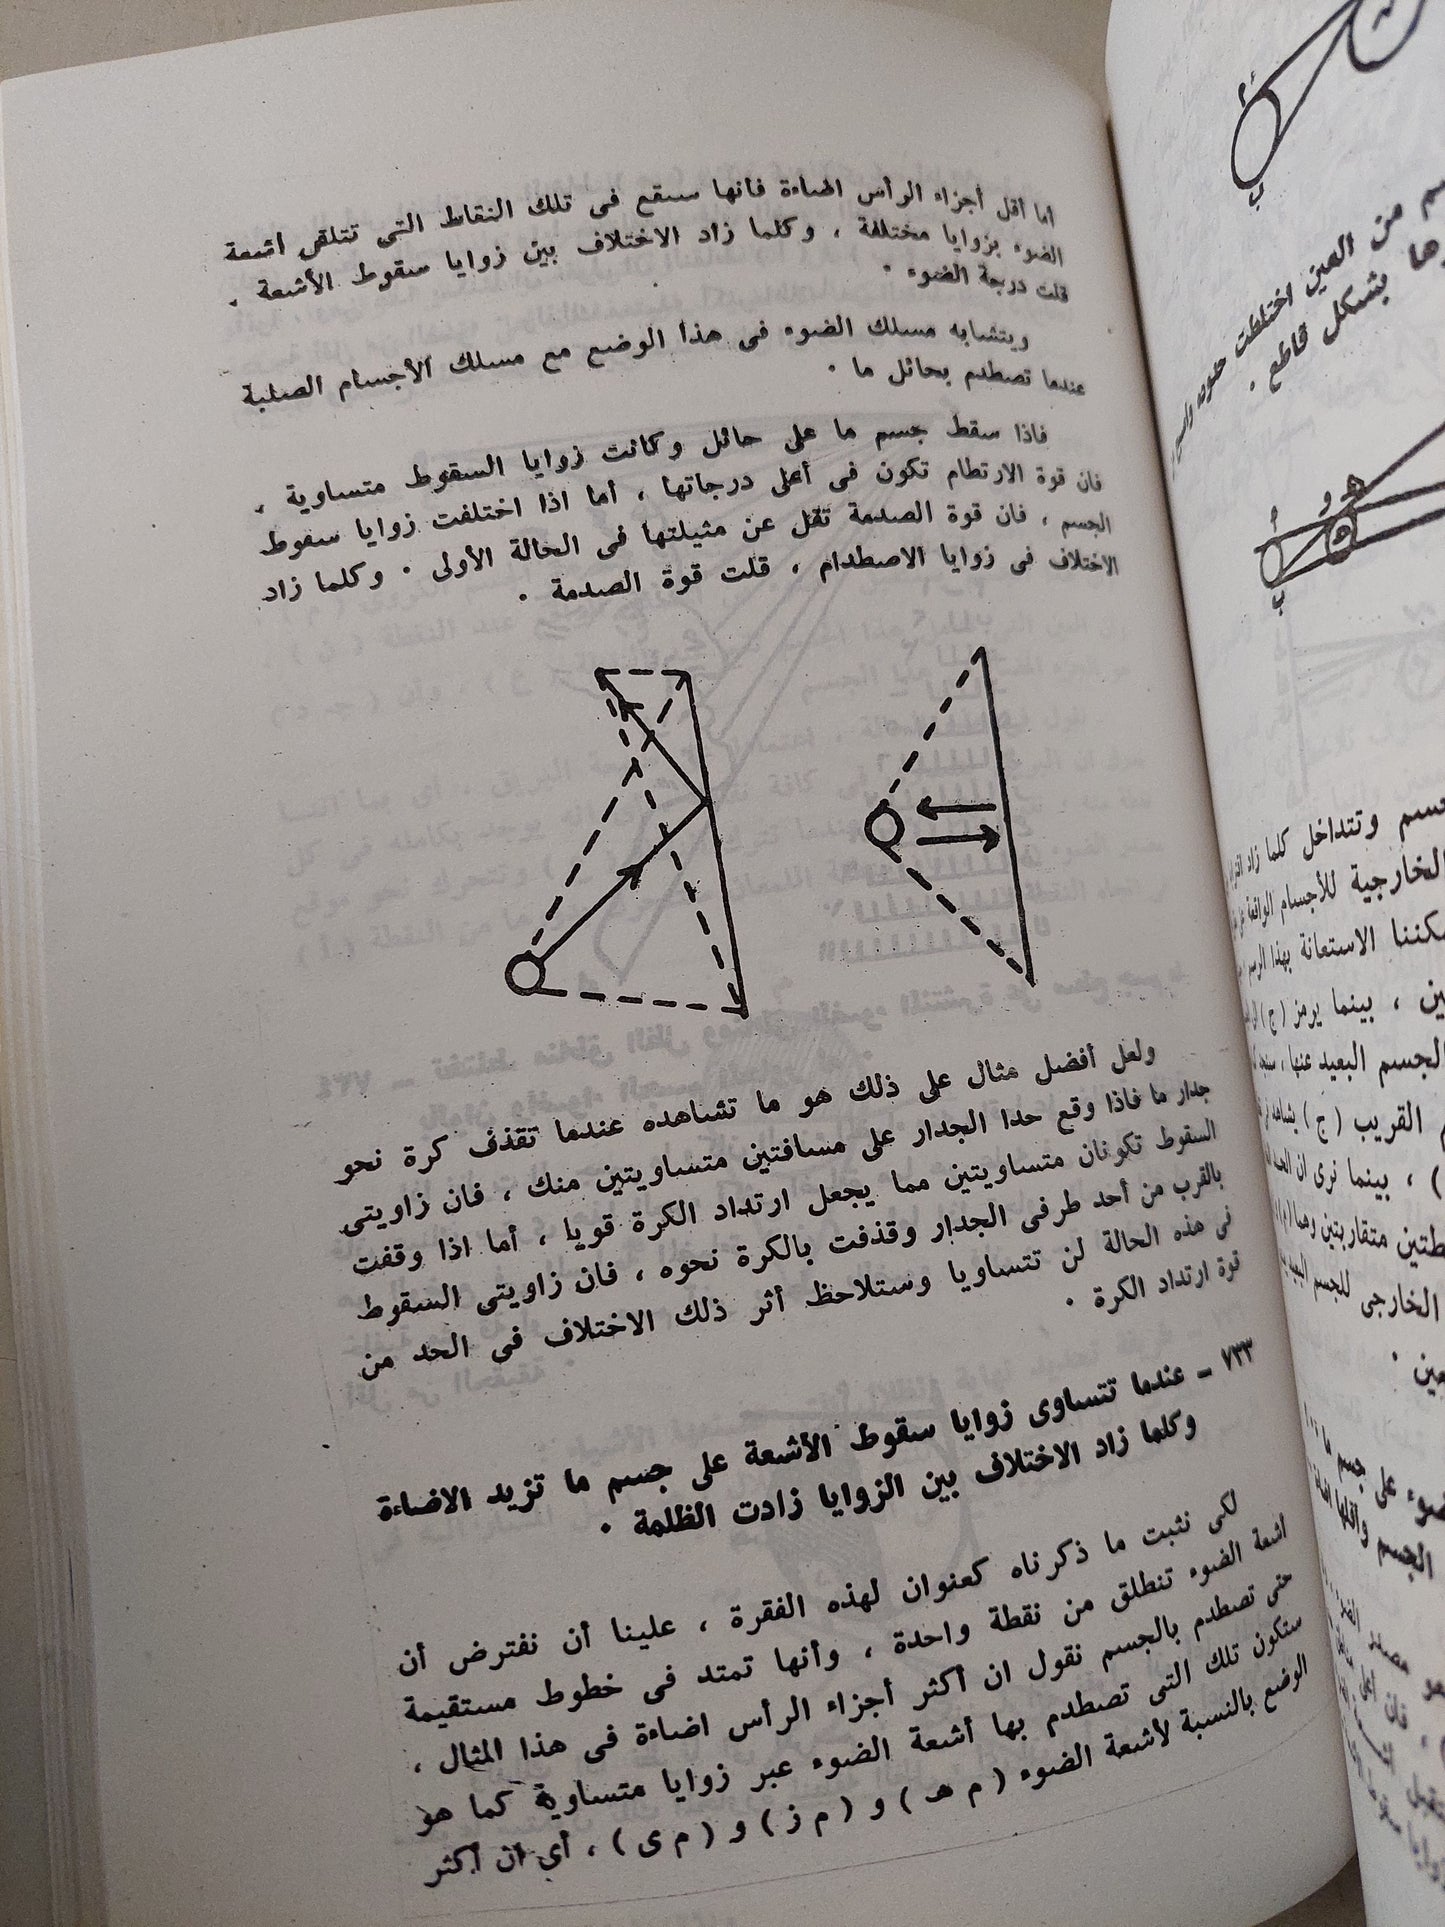 أما أقل أجزاء الرأس المضاءة فانها ستقع فى تلك النقاط التى تتلقى أشعة
الضوء بزوايا مختلفة ، وكلما زاد الاختلاف بين زوايا سقوط الأشعة ،
قلت درجة الضوء .
ويتشابه مسلك الضوء فى هذا الوضع مع مسلك الأجسام الصلبة
عندما تصطدم بحائل ما .
فاذا سقط جسم ما على حائل وكانت زوايا السقوط متساوية ،
فان قوة الارتطام تكون فى أعلى درجاتها ، أما اذا اختلفت زوايا سقوط
الجسم ، فان قوة الصدمة تقل عن مثيلتها فى الحالة الأولى . وكلما زاد
الاختلاف فى زوايا الاصطدام ، قلت قوة الصدمة .
ولعل أفضل مثال على ذلك هو ما تشاهده عندما تقذف كرة نحو
جدار ما فاذا وقع حدا الجدار على مسافتين متساويتين منك ، فان زاويتى
السقوط تكونان متساويتين مما يجعل ارتداد الكرة قويا ، أما اذا وقفت
بالقرب من أحد طرفى الجدار وقذفت بالكرة نحوه ، فان زاويتى السقوط
فى هذه الحالة لن تتساويا وستلاحظ أثر ذلك الاختلاف فى الحد من
قوة ارتداد الكرة .
٧٣٣ ــ عندما تتساوى زوايا سقوط الأشعة على جسم ما تزيد الاضاءة
وكلما زاد الاختلاف بين الزوايا زادت الظلمة .
لكى نثبت ما ذكرناه كعنوان لهذه الفقرة ، علينا أن نفترض أن
أشعة الضوء تنطلق من نقطة واحدة ، وأنها تمتد فى خطوط مستقيمة
حتى تصطدم بالجسم نقول ان أكثر أجزاء الرأس اضاءة فى هذا المثال ،
ستكون تلك التى تصطدم بها أشعة الضوء عبر زوايا متساوية كما هو
الوضع بالنسبة لأشعة الضوء ( م هـ ) و ( م ز ) و ( م ى ) ، أى ان أكثر
أ
ب
من العين اختلطت حدوده
بشكل قاطع .
م
و
هـ
ب
وتتداخل كلما زاد
الخارجية للأجسام الواقعة
الاستعانة بهذا الرسم
، بينما يرمز ( ج )
الجسم البعيد عنها ،
القريب ( ج )
، بينما نرى ان
متقاربتين وهما
الخارجى للجسم
على جسم ما
الجسم
مصدر